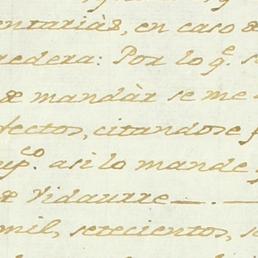 entariàs, en caso de
edera: Por lo q.e s
de mandàr se me
fectos, citandose p
up.co asi lo mande
de Vidaurre
mil, setecientos, s